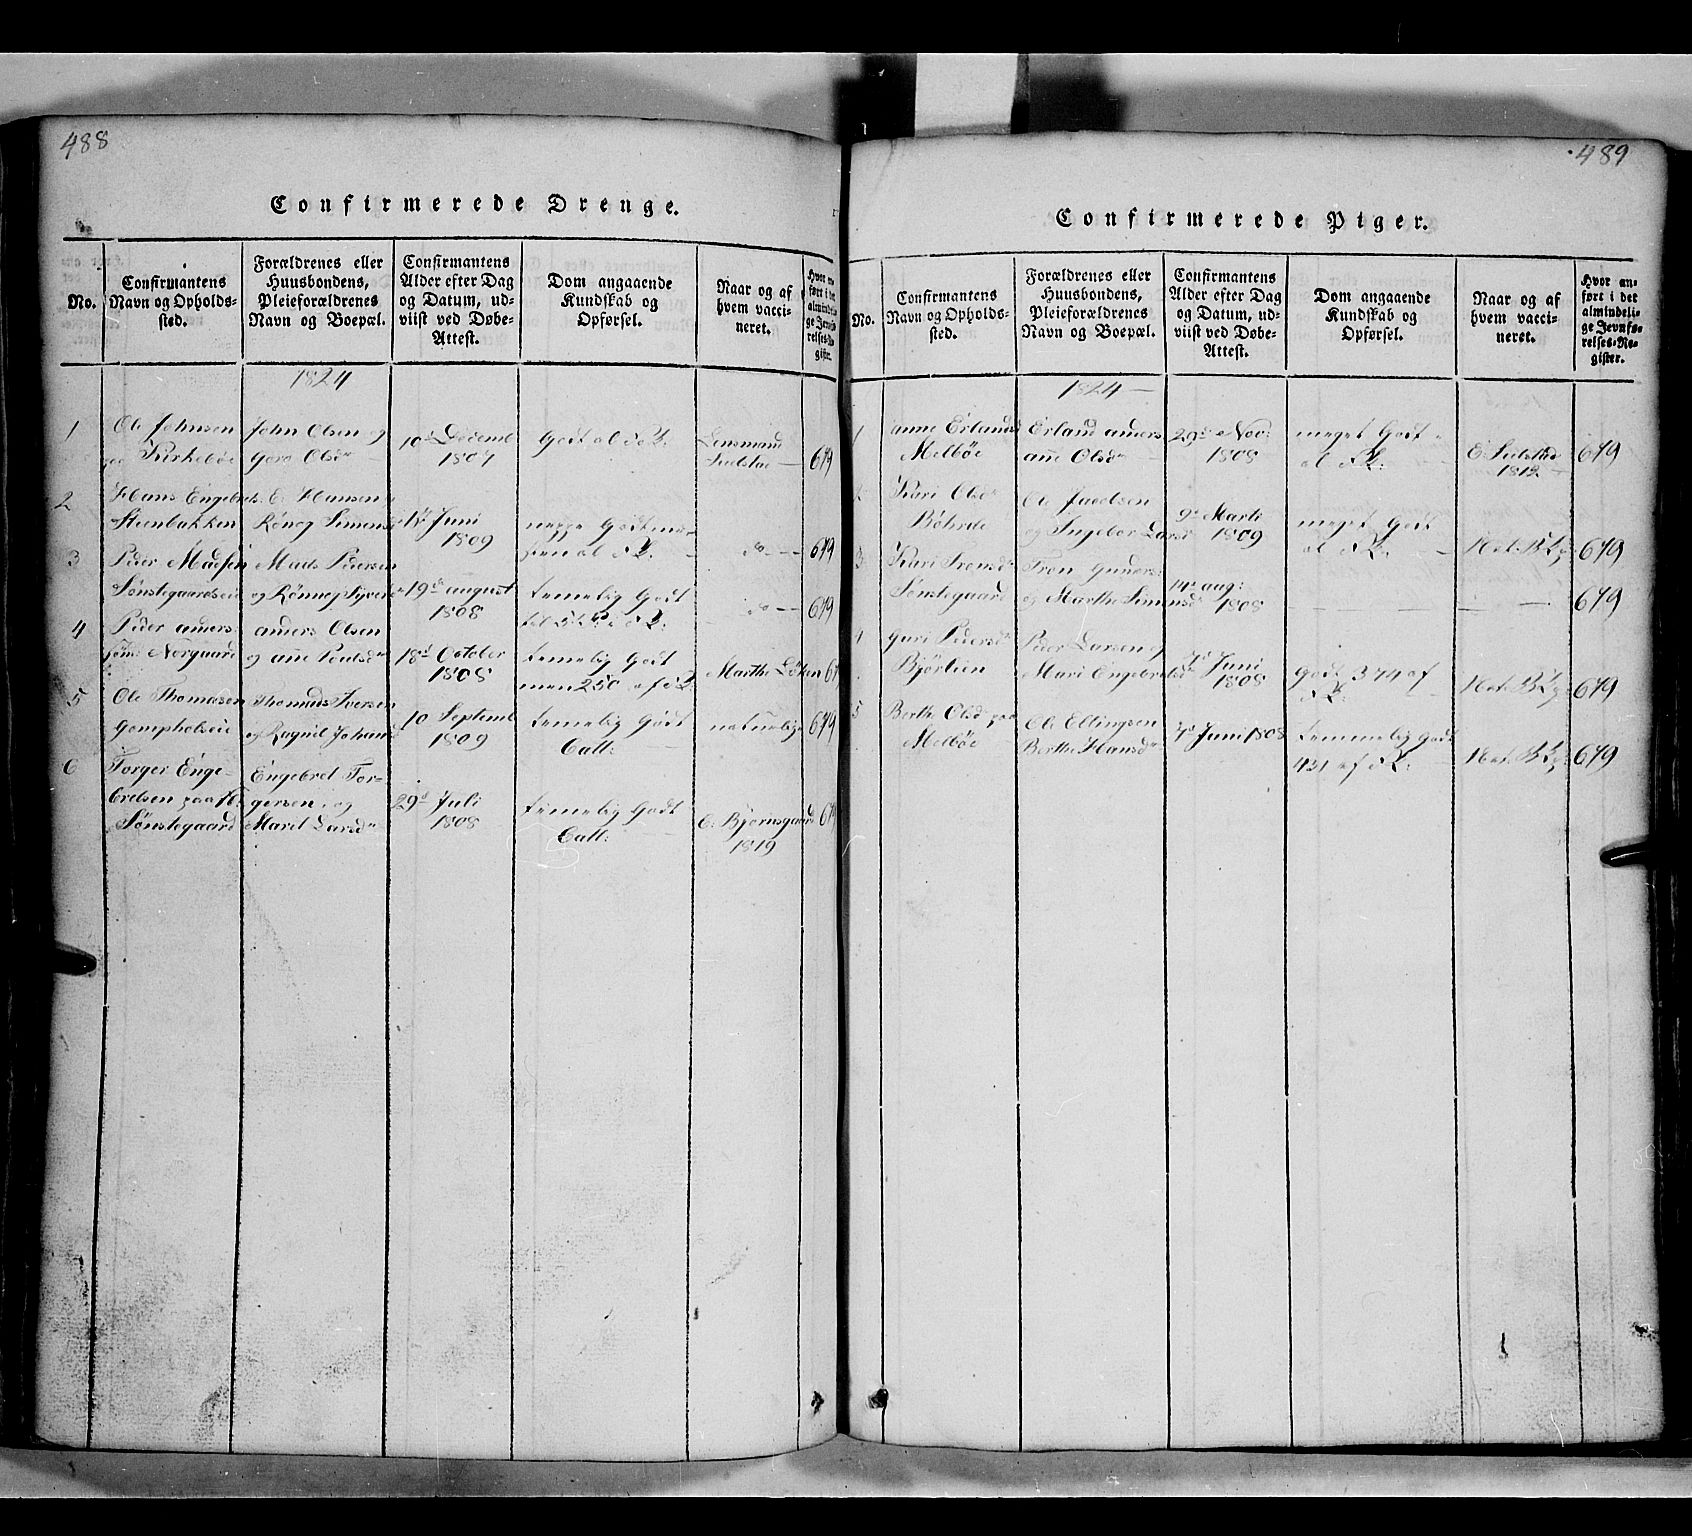 488
Confirmerede Drenge.
No.
Confirmantens
Navn og Opholds-
sted.
Forældrenes eller
Huusbondens,
Pleieforældrenes
Navn og Boepæl.
Confirmantens
Alder efter Dag
og Datum, ud-
viist ved Døbe-
Attest.
Dom angaaende
Kundskab og
Opførsel.
Naar og af
hvem vacci-
neret.
Hvor an-
ført i det
almindeli-
ge Jevnfø-
relses-Re-
gister.
1824
1
Ole Johnsen
Kirkeböe
John Olsen og
Goro Olsdr
10d Decemb
1807
Godt
Lensmand
679
2
Hans Engebrets
Steenbakken
E: Hansen
Rönog Simens
Juni
1809
Godt
do
679
3
Peder Madsen
Sönstegaardseie
Mads Pedersen
og Rönnog Syvers
19de august
1808
temelig Godt
do
679
4
Peder amers
Norgaard
amers Olsen
og ane Poulsdr
18d October
1808
temelig Godt
men 250 af
Marthe Löken
5
Ole Thomasen
Gompholseie
Thomas Iversen
og Ragnil Johans
10 Septemb
1809
temelig Godt
Catt:
naturlige
679
6
Torger Enge-
bretsen paa
Sönstegaard
Engebret Tor-
gersen og
Marit Larsdr
29d Juli
1808
temelig Godt
Catt:
E: Björnsgaard
1819
679
489
Confirmerede Piger.
No.
Confirmantens
Navn og Opholds-
sted.
Forældrenes eller
Huusbondens,
Pleieforældrenes
Navn og Boepæl.
Confirmantens
Alder efter Dag
og Datum, ud-
viist ved Døbe-
Attest.
Dom angaaende
Kundskab og
Opførsel.
Naar og af
hvem vacci-
neret.
Hvor an-
ført i det
almindeli-
ge Jevnfø-
relses-Re-
gister.
1824
1
anne Erlands
Melböe
Erland amers
ane Olsdr
29de Nov:
1808
meget Godt
1812
679
2
Kari Olsdr
Ole Jacobsen
og Ingebor Larsd
9de Marti
1809
meget Godt
679
3
Kari Tronsdr
Sönstegaard
Tron Guners
og Marthe Simensd
14d aug:
1808
679
4
Guri Pedersdr
Björlien
Peder Larsen og
Mari Engebretsd
Juni
1808
Godt 374 af
679
5
Berthe Olsdr paa
Melböe
Ole Ellingsen
Berthe Hansdr
Juni 1808
temmelig Godt
431 af
679